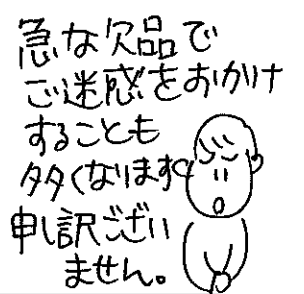 急な欠品で
ご迷惑をおかけ
することも
多くなります
申し訳ござい
ません。